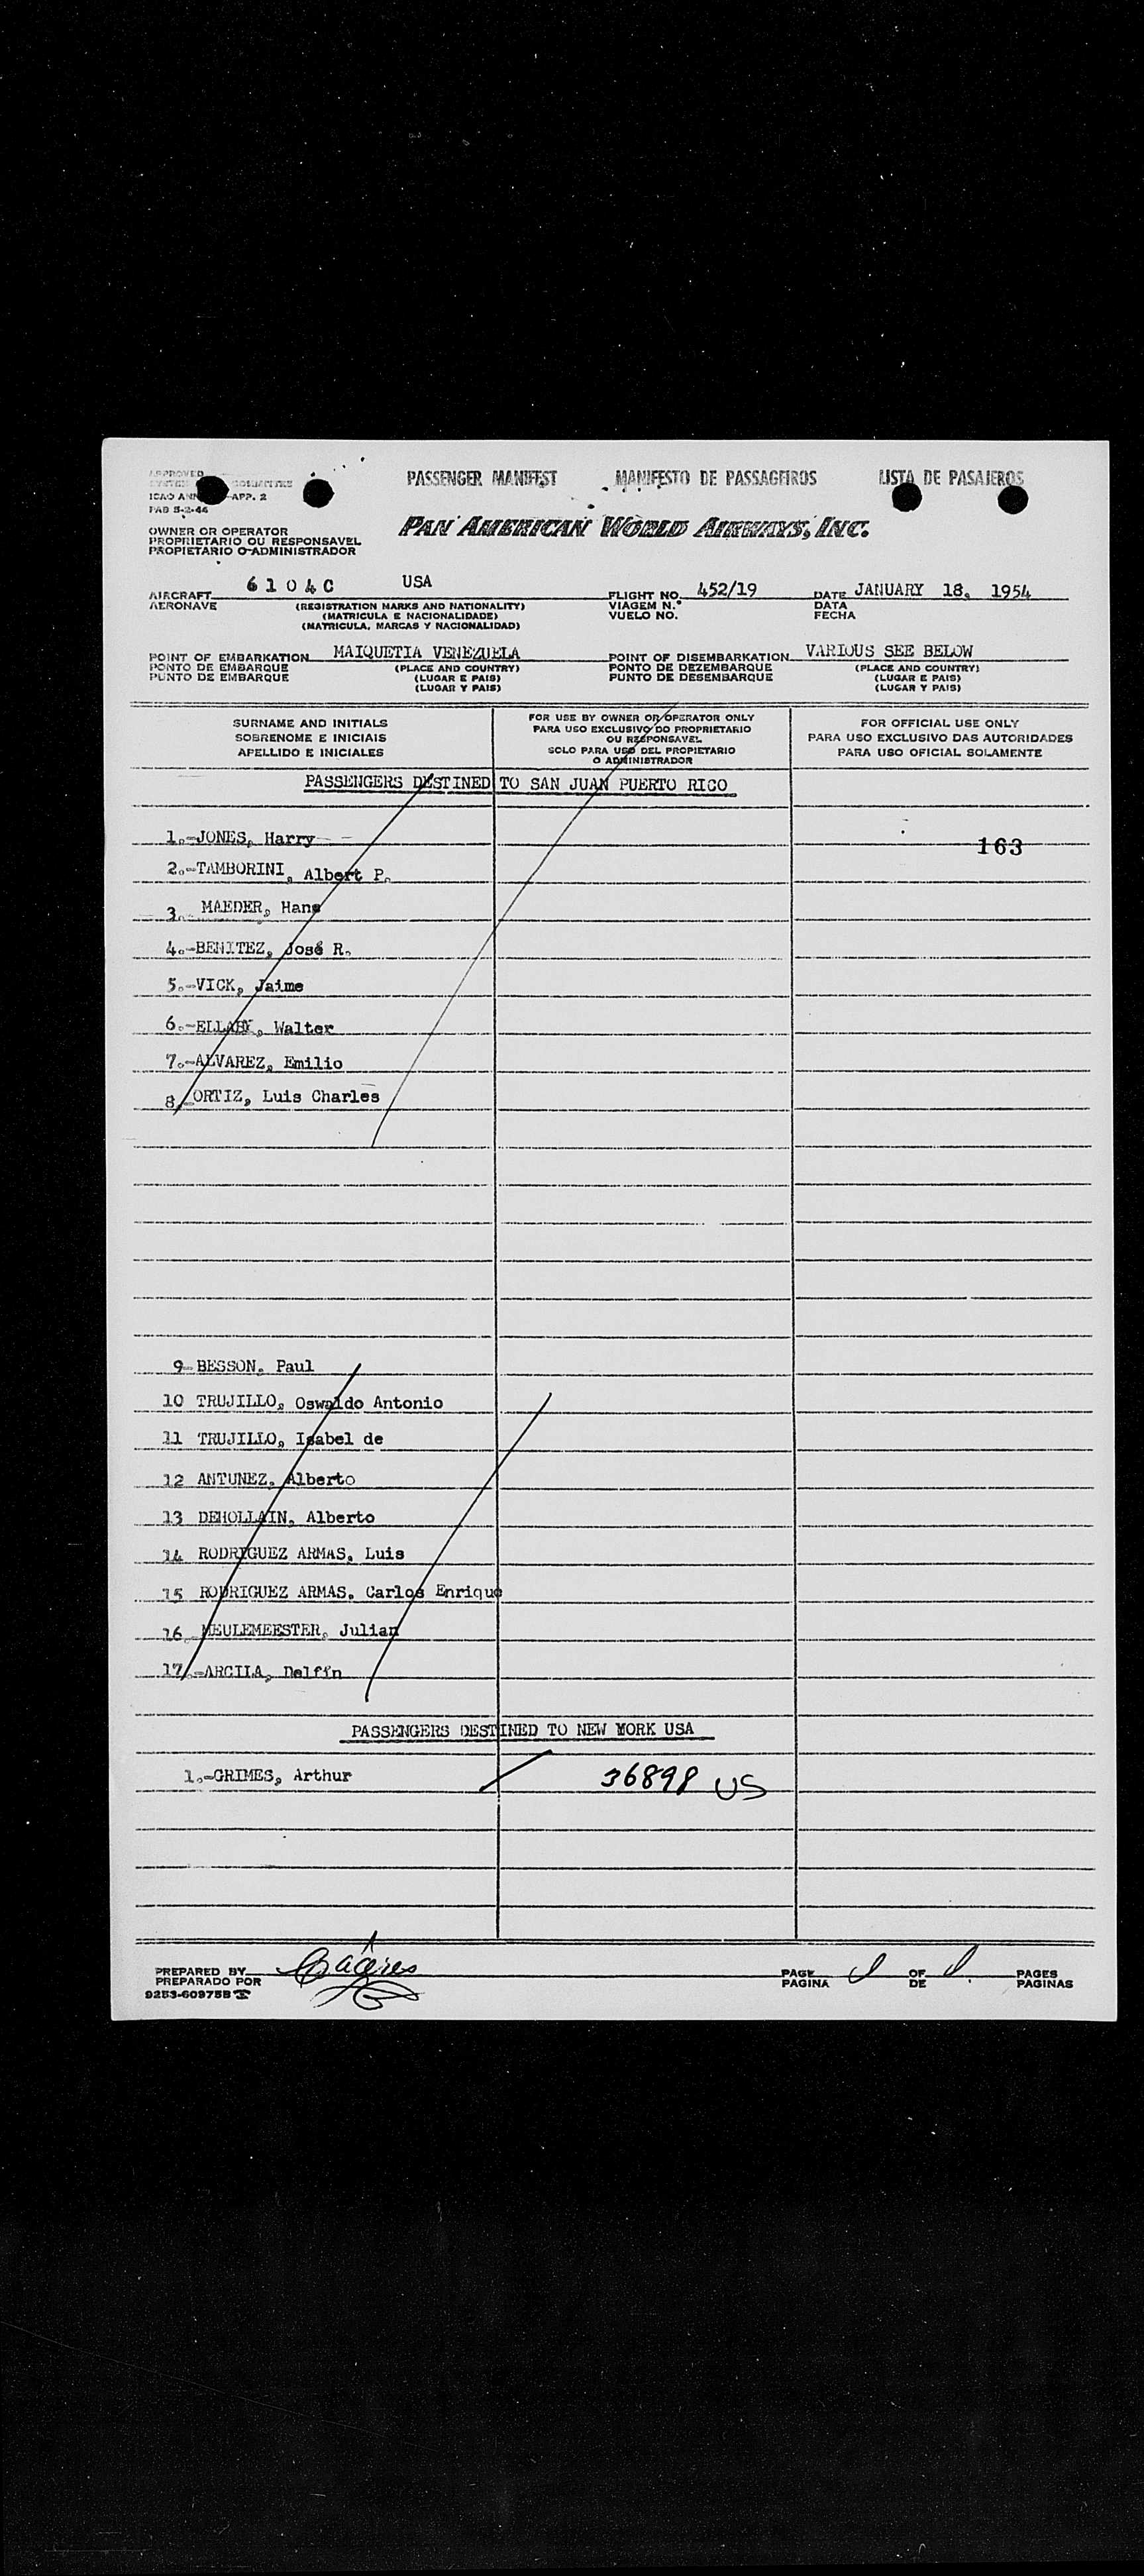 APPROVED
ICAO ANN APP. 2
FAB 5-2-44
PASSENGER MANIFEST MANIFESTO DE PASSAGEIROS LISTA DE PASAJEROS
PAN AMERICAN WORLD AIRWAYS, INC.
OWNER OR OPERATOR
PROPRIETARIO OU RESPONSAVEL
PROPIETARIO O ADMINISTRADOR
AIRCRAFT 6104C USA FLIGHT NO. 452/19 DATE JANUARY 18, 1954
AERONAVE (REGISTRATION MARKS AND NATIONALITY) VIAGEM N.º DATA
(MATRICULA E NACIONALIDADE) VUELO NO. FECHA
(MATRICULA, MARCAS Y NACIONALIDAD)
POINT OF EMBARKATION MAIQUETIA VENEZUELA POINT OF DISEMBARKATION VARIOUS SEE BELOW
PONTO DE EMBARQUE (PLACE AND COUNTRY) PONTO DE DEZEMBARQUE (PLACE AND COUNTRY)
PUNTO DE EMBARQUE (LUGAR E PAIS) PUNTO DE DESEMBARQUE (LUGAR E PAIS)
(LUGAR Y PAIS) (LUGAR Y PAIS)
SURNAME AND INITIALS
SOBRENOME E INICIAIS
APELLIDO E INICIALES
FOR USE BY OWNER OR OPERATOR ONLY
PARA USO EXCLUSIVO DO PROPRIETARIO
OU RESPONSAVEL
SOLO PARA USO DEL PROPIETARIO
O ADMINISTRADOR
FOR OFFICIAL USE ONLY
PARA USO EXCLUSIVO DAS AUTORIDADES
PARA USO OFICIAL SOLAMENTE
PASSENGERS DESTINED TO SAN JUAN PUERTO RICO
1.-JONES, Harry 163
2.-TAMBORINI, Albert P.
3. MAEDER, Hans
4.-BENITEZ, José R.
5.-VICK, Jaime
6.-ELLABY, Walter
7.-ALVAREZ, Emilio
8 ORTIZ, Luis Charles
9- BESSON, Paul
10 TRUJILLO, Oswaldo Antonio
11 TRUJILLO, Isabel de
12 ANTUNEZ, Alberto
13 DEHOLLAIN, Alberto
14 RODRIGUEZ ARMAS, Luis
15 RODRIGUEZ ARMAS, Carlos Enrique
16.-MEULEMEESTER, Julian
17.-ARCILA, Delfín
PASSENGERS DESTINED TO NEW YORK USA
1.-GRIMES, Arthur 36898 US
PREPARED BY Cáceres PAGE 1 OF 1. PAGES
PREPARADO POR PAGINA DE PAGINAS
9253-60975B